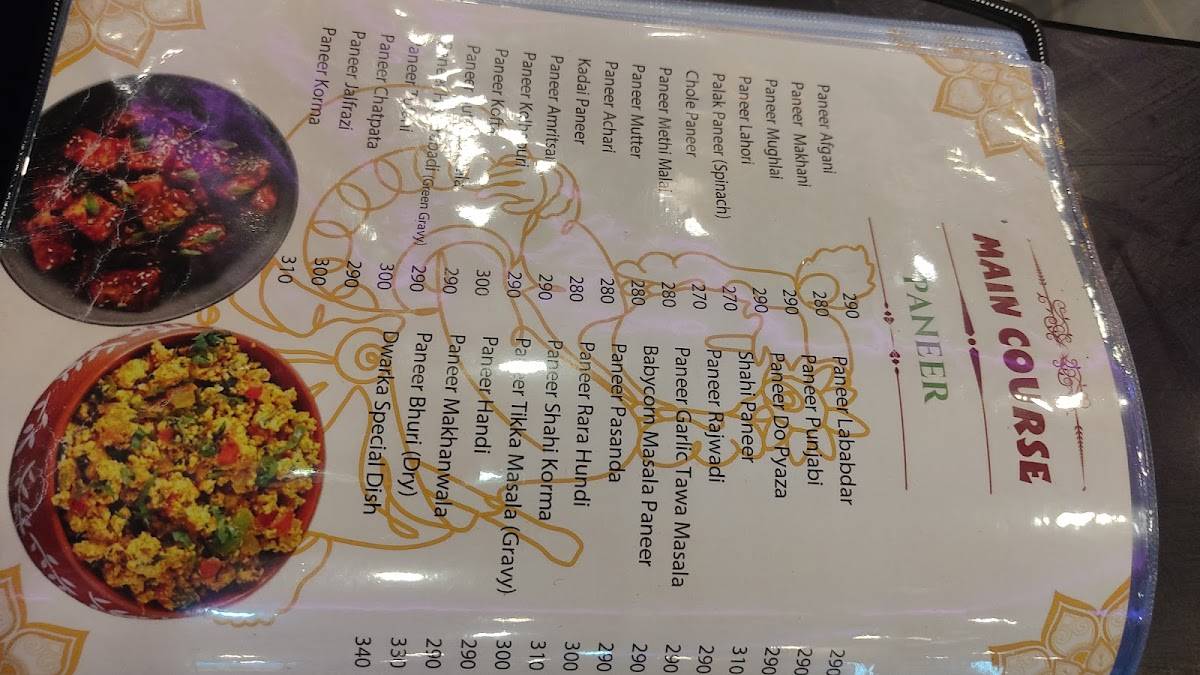 MAIN COURSE
PANEER
Paneer Afgani 290
Paneer Makhani 280
Paneer Mughlai 290
Paneer Lahori 290
Palak Paneer (Spinach) 270
Chole Paneer 270
Paneer Methi Malai 280
Paneer Mutter 280
Paneer Achari 280
Kadai Paneer 280
Paneer Amritsari 290
Paneer Kolhapuri 290
Paneer 300
Paneer 290
(Green Gravy) 290
Paneer 300
Paneer Chatpata 290
Paneer Jalfrazi 300
Paneer Korma 310
Paneer Lababdar 290
Paneer Punjabi 290
Paneer Do Pyaza 290
Shahi Paneer 310
Paneer Rajwadi 290
Paneer Garlic Tawa Masala 290
Babycorn Masala Paneer 290
Paneer Pasanda 290
Paneer Rara Hundi 300
Paneer Shahi Korma 310
Paneer Tikka Masala (Gravy) 300
Paneer Handi 290
Paneer Makhanwala 290
Paneer Bhuri (Dry) 330
Dwarka Special Dish 340